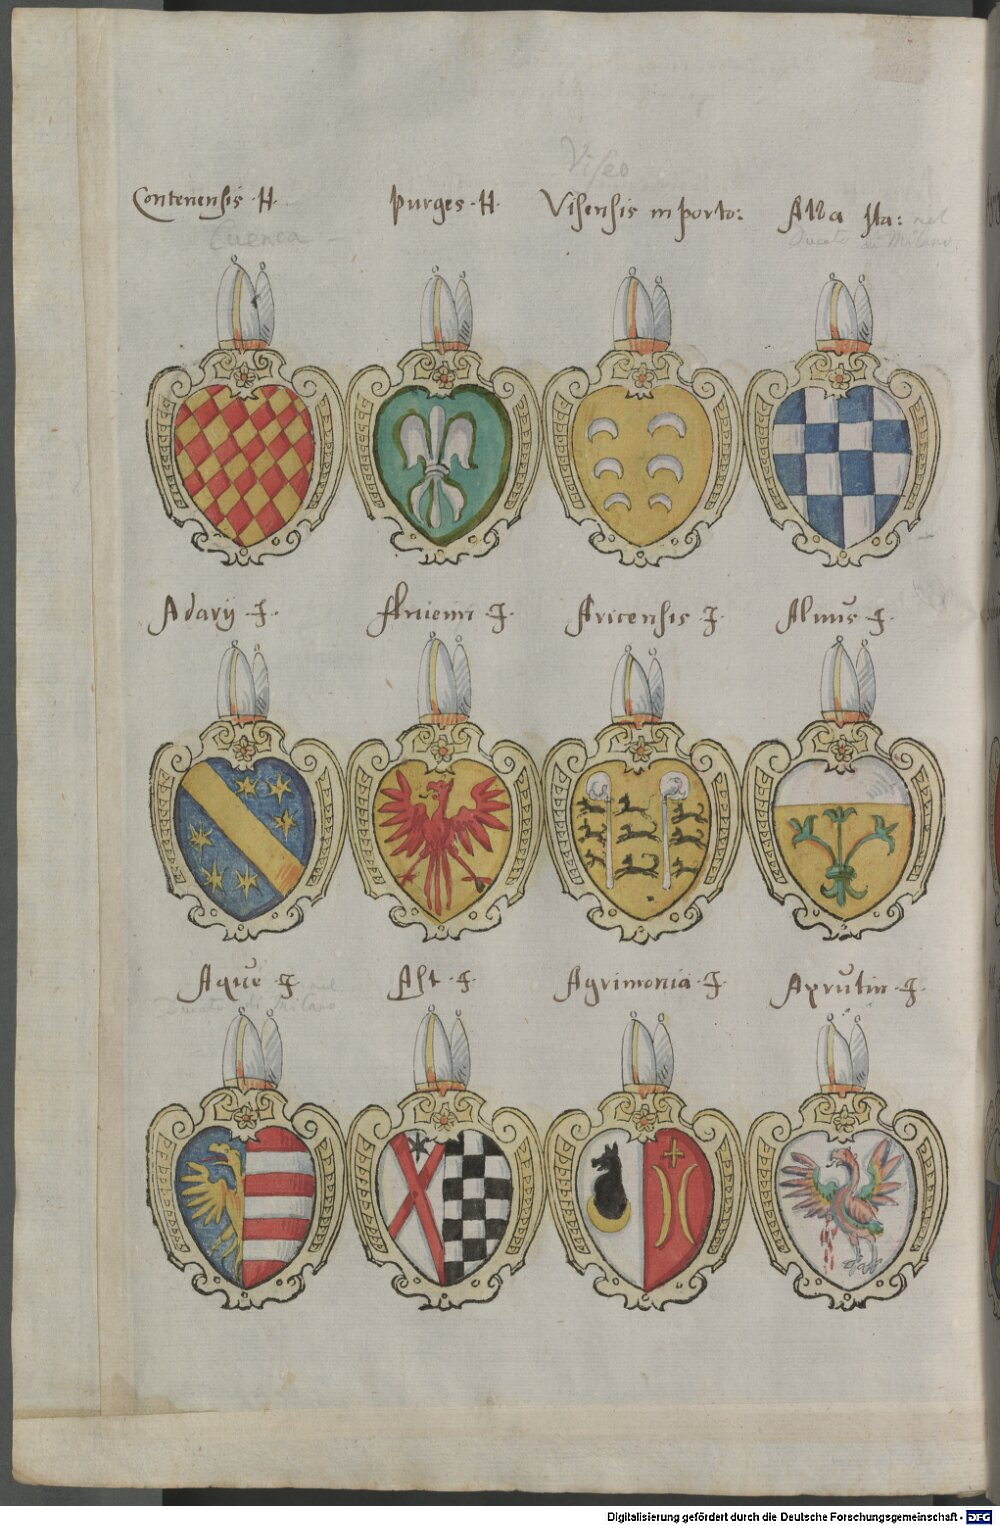 Viseo
Contenensis · H · purges · H · Visensis in porto: Alla Ita: nel
Cuenca Ducato di Milano
Adarij · J · J · Aricensis J · Almūs J ·
Aquē J nel Ast · J · Agrimonia · J · Aprūtin · J ·
Ducato di Milano
Digitalisierung gefördert durch die Deutsche Forschungsgemeinschaft - DFG